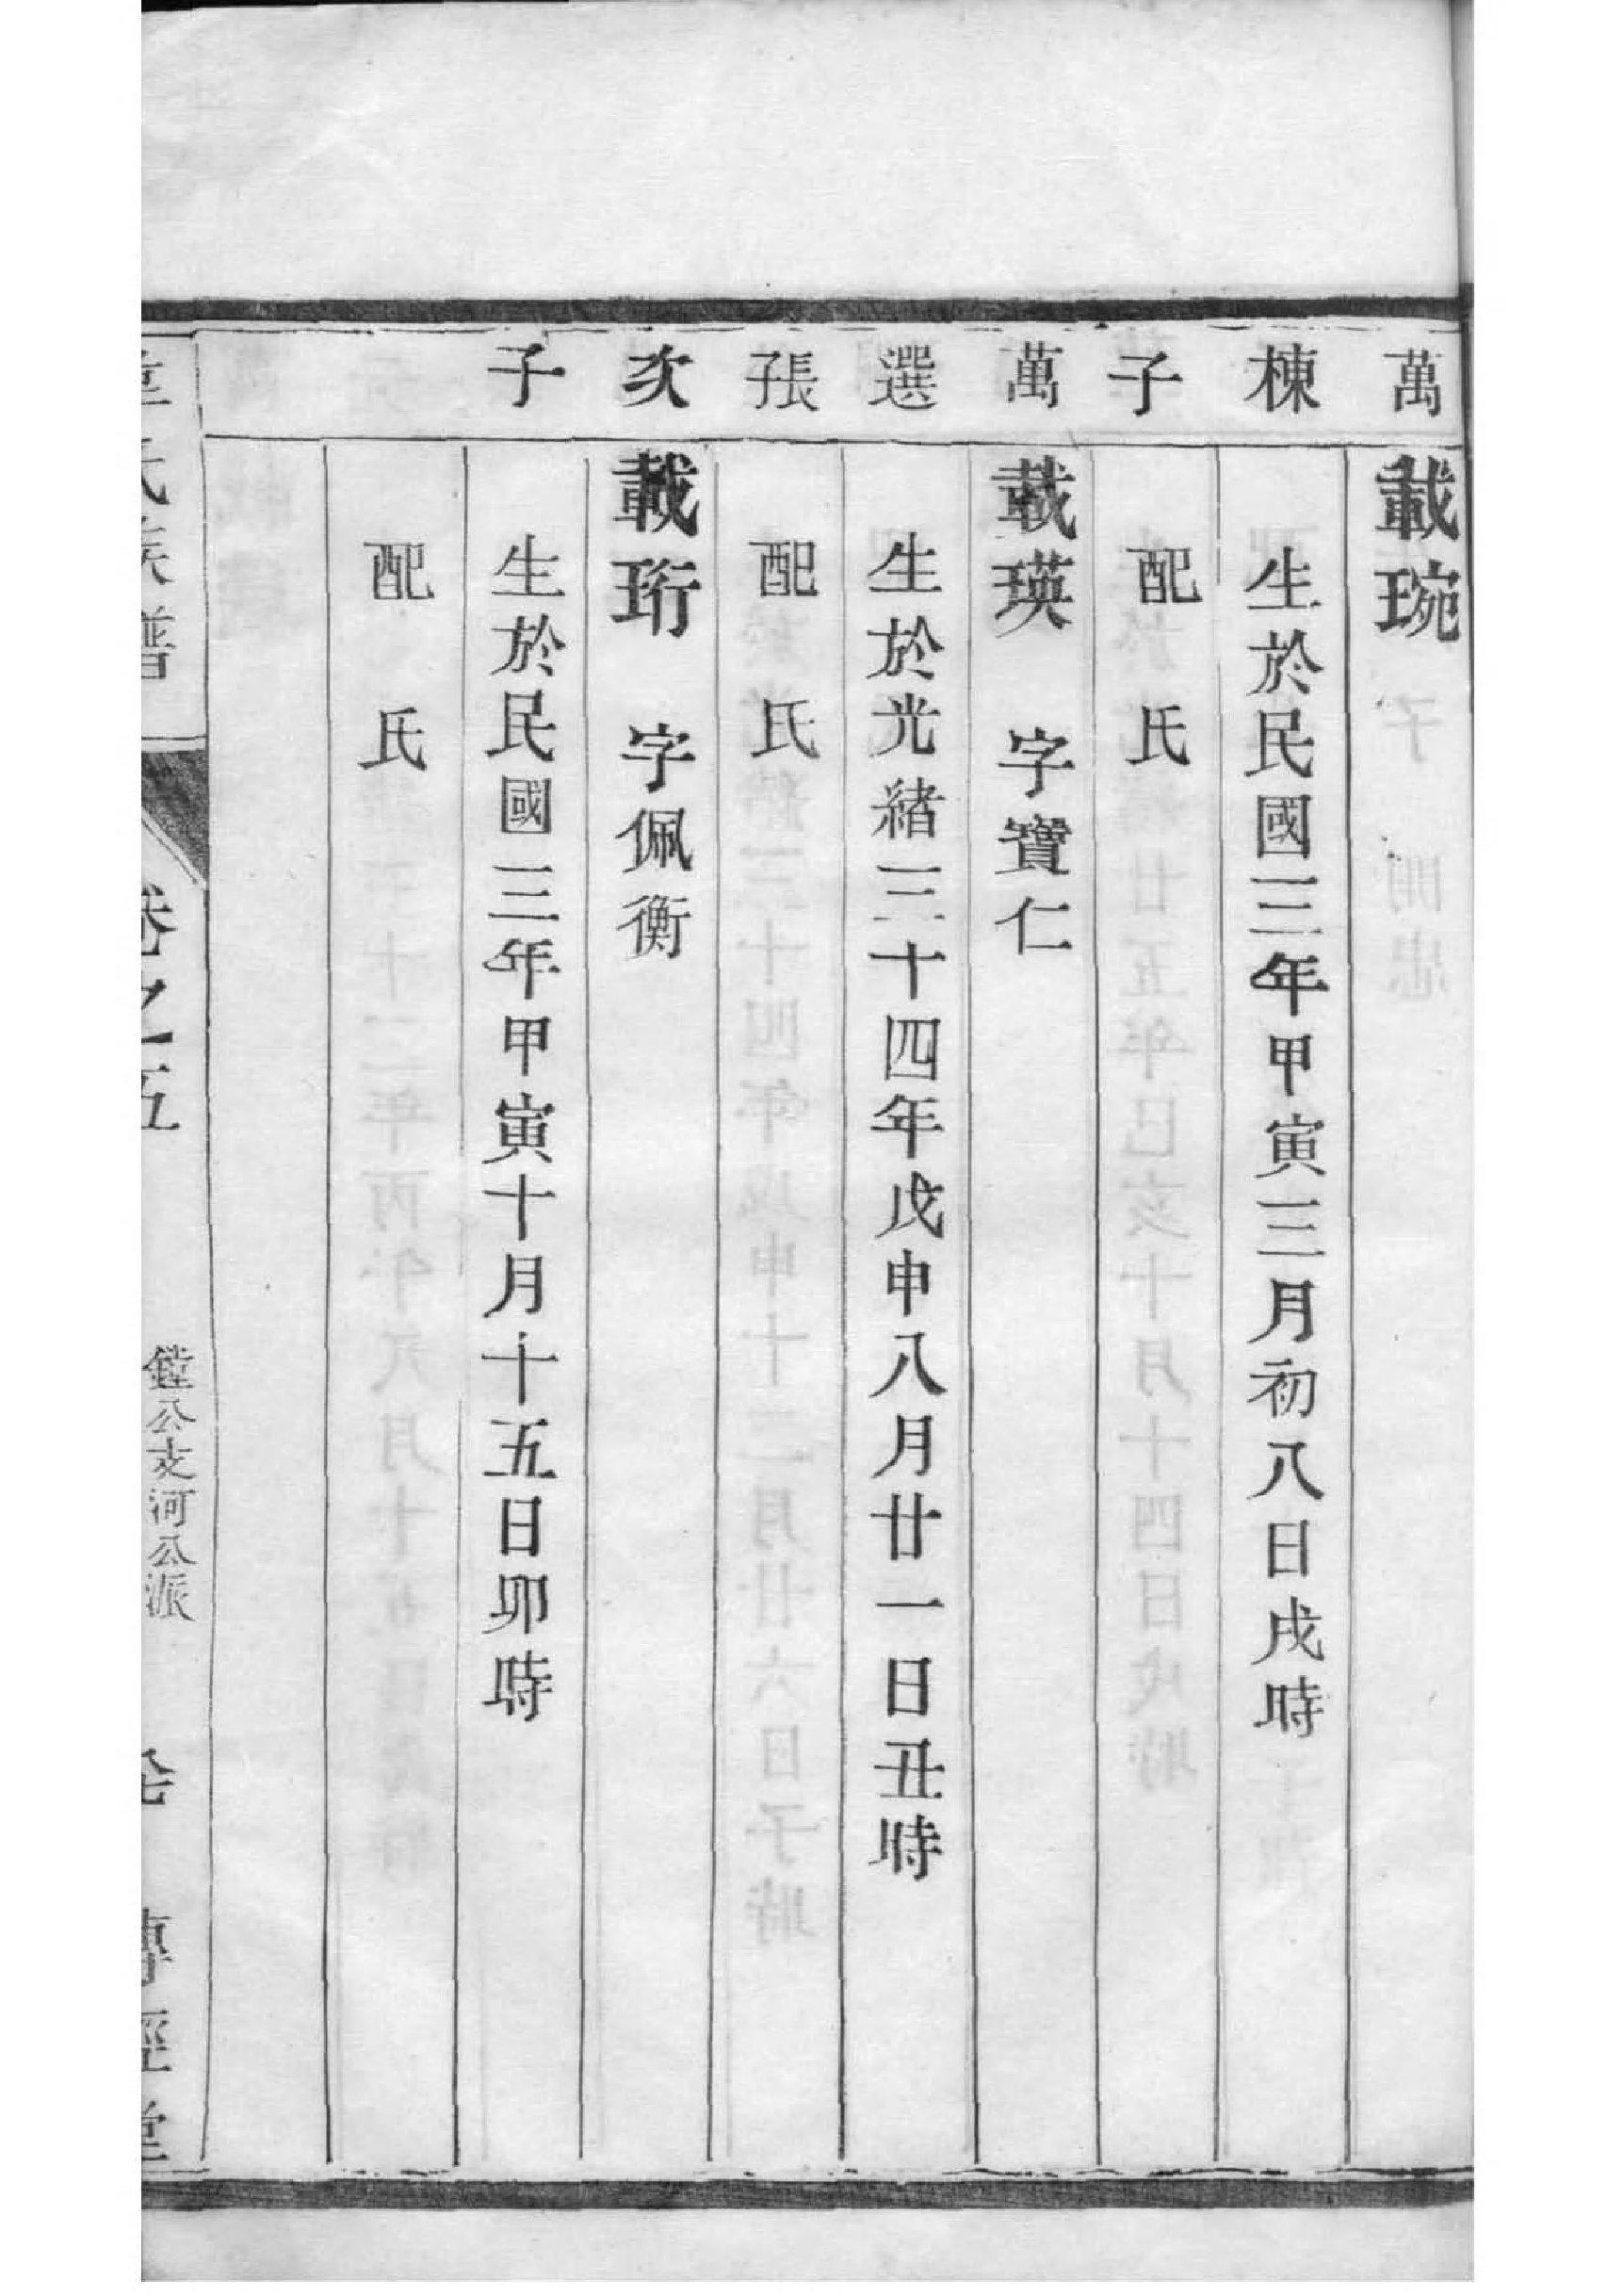 萬
載琬
棟
生於民國三年甲寅三月初八日戌時
子
配 氏
萬
載瑛 字寶仁
選
生於光緒三十四年戊申八月廿一日丑時
張子
配 氏
次
載珩 字佩衡
子
生於民國三年甲寅十月十五日卯時
配 氏
氏族譜
卷之五
鏜公支河公派
傳經堂